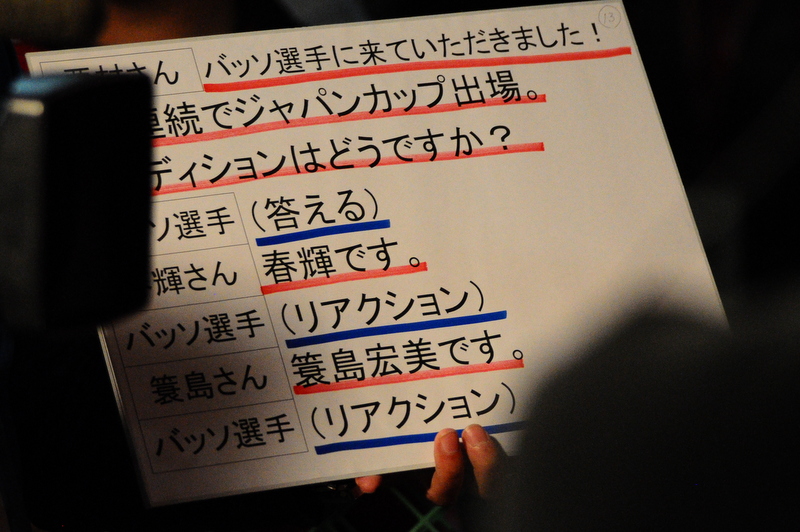 13
西村さん バッソ選手に来ていただきました！
連続でジャパンカップ出場。
ディションはどうですか？
ソ選手 （答える）
輝さん 春輝です。
バッソ選手 （リアクション）
簑島さん 簑島宏美です。
バッソ選手 （リアクション）